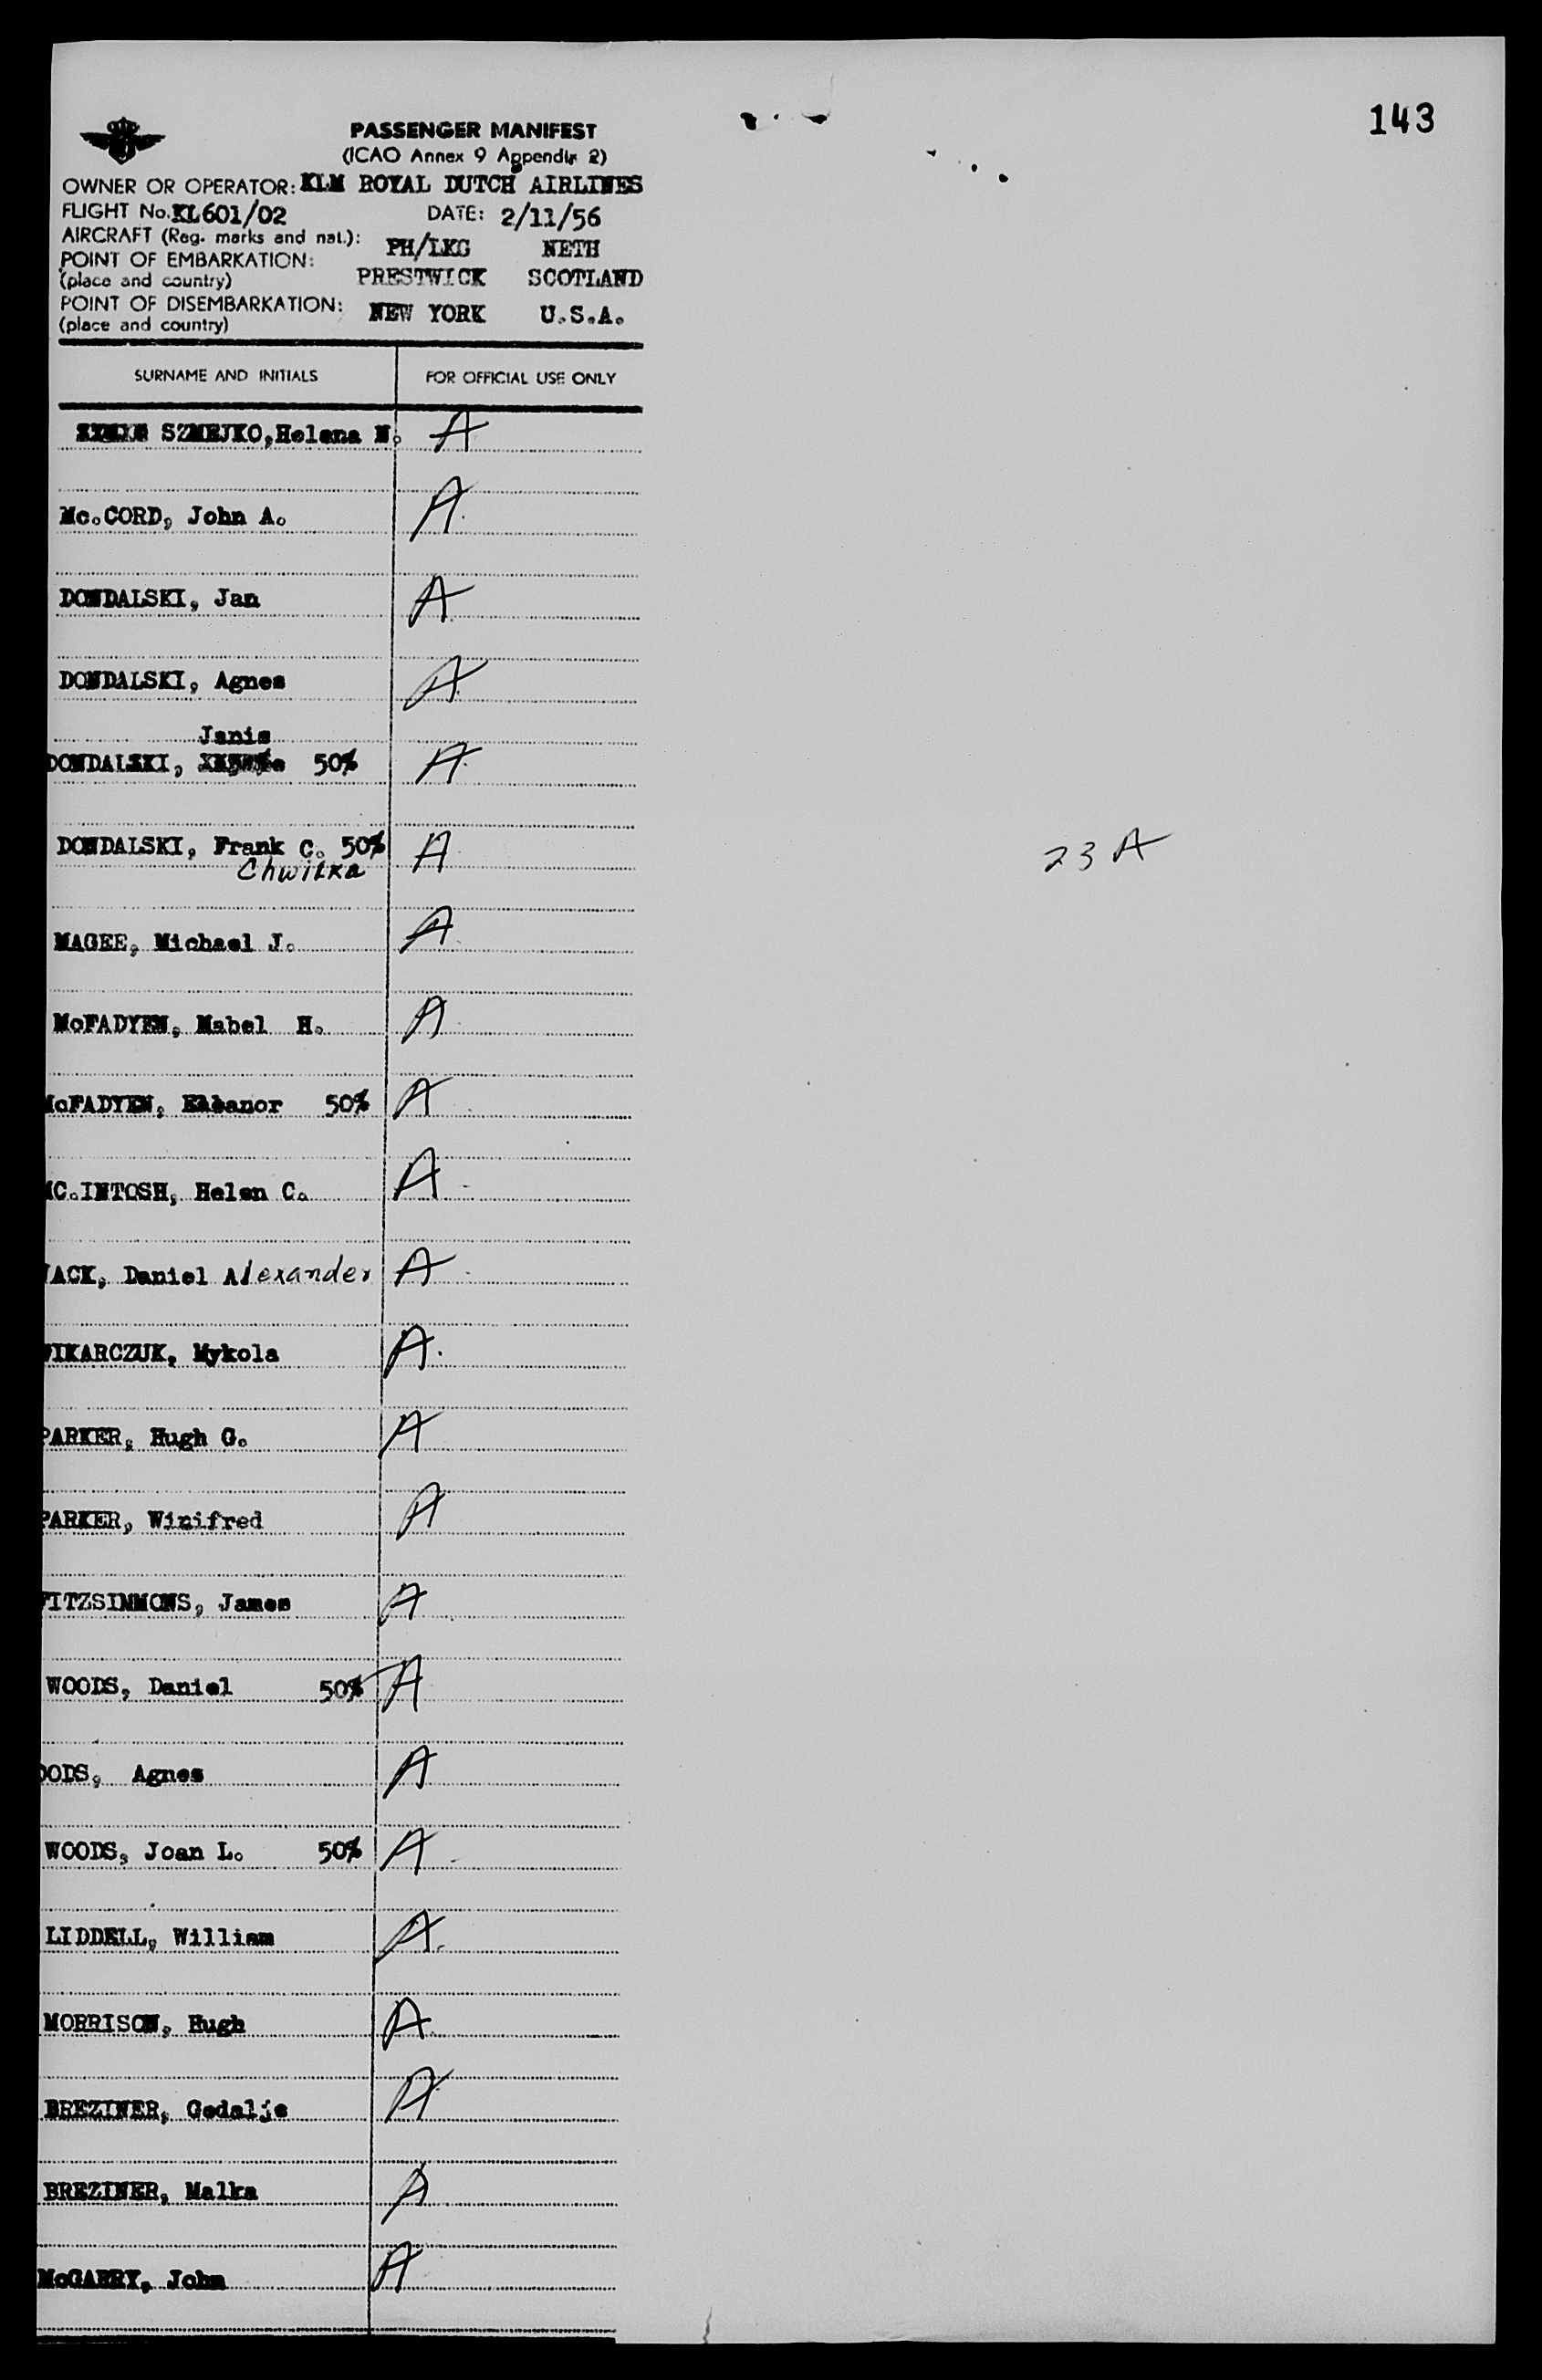 143
PASSENGER MANIFEST
(ICAO Annex 9 Appendix 2)
OWNER OR OPERATOR: KLM ROYAL DUTCH AIRLINES
FLIGHT No. KL601/02 DATE: 2/11/56
AIRCRAFT (Reg. marks and nat.): PH/LKG NETH
POINT OF EMBARKATION:
(place and country) PRESTWICK SCOTLAND
POINT OF DISEMBARKATION: NEW YORK U.S.A.
(place and country)
SURNAME AND INITIALS FOR OFFICIAL USE ONLY
SZMEJKO, Helena N. A
Mc.CORD, John A. A
DONDALSKI, Jan A
DONDALSKI, Agnes A
Janis
DONDALSKI, 50% A
DONDALSKI, Frank C. 50% A
Chwilka
23 A
MAGEE, Michael J. A
McFADYEN, Mabel H. A
McFADYEN, Eleanor 50% A
MC.INTOSH, Helen C. A
JACK, Daniel Alexander A
IKARCZUK, Mykola A
PARKER, Hugh G. A
PARKER, Winifred A
FITZSIMMONS, James A
WOODS, Daniel 50% A
OODS, Agnes A
WOODS, Joan L. 50% A
LIDDELL, William A
MORRISON, Hugh A
BREZINER, Gedalje A
BREZINER, Malka A
McGARRY, John A